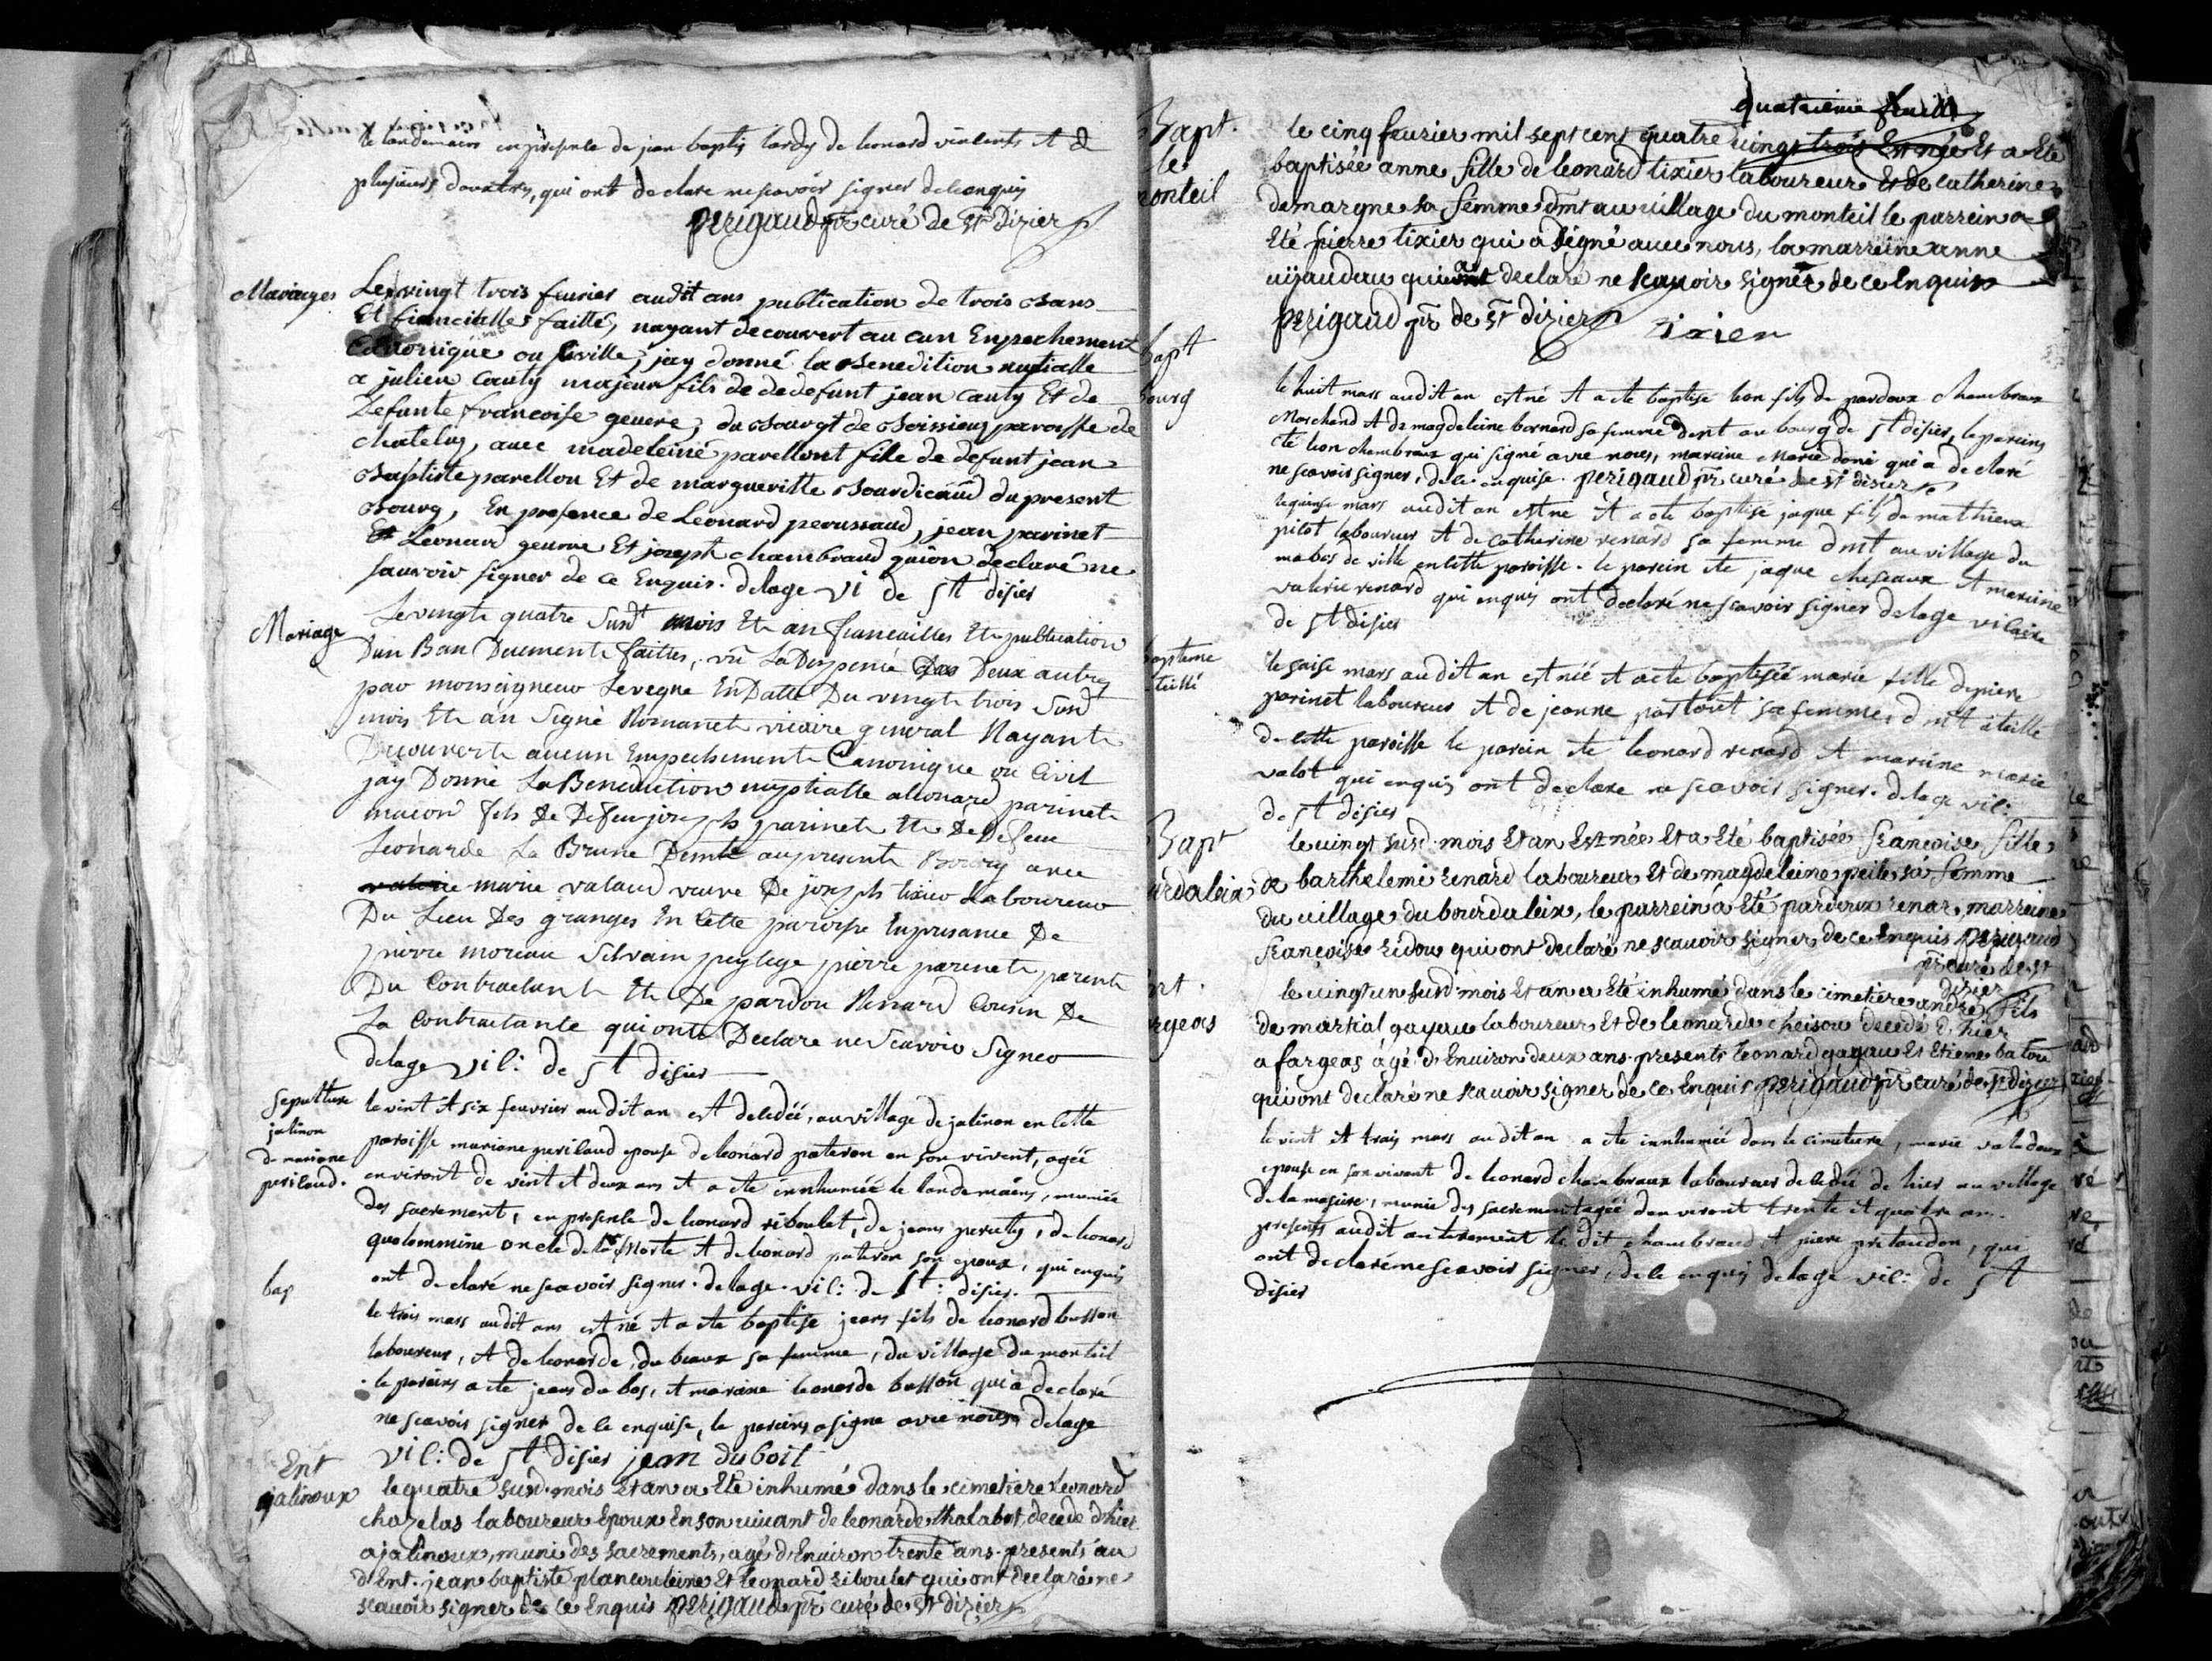 le landemains en presence de jean baptis lardy de leonard vinlents et de
plusieurs dautres, qui ont declare ne scavoir signer de le enquis
perigaud pr curé de st dizier
Mariages
Le vingt trois feurier audit ans publication de trois bans
Et fiancialles faitte, nayant decouvert au cun Enpechement
Canonique ou siville, jay donné la Benedition nuptialle
a julien Cauty majeur fils de dedefunt jean Cauty Et de
Defunte francoise genere, du Bourgt de Boissieux paroisse de
Chatelus, avec madeleine parellont fille de defunt jean
Baptiste parellon Et de margueritte Bourdicaud du present
Bourg, En presence de Leonard peroussaud, jean parinet
Et Leonard genere Et joseph chambraud quion declaré ne
sauvoir signer de ce Enquis. delage vi de st disier
Mariage
Le vingt quatre susdt mois Et an fiancailles Et publication
Dun Ban Deument faittes, vu La Dispense Des Deux autres
par monseigneur Leveque En Datte Du vingt trois susd
mois Et an Signé Romanet vicaire general Nayant
Decouvert aucun Empechement Canonique ou Civil
jay Donné La Benediction nuptialle a Leonard parinet
macon fils De Defeu joseph parinet Et De Defeue
Leonarde La Brune Demt au present Bourg avec
marie valaud veuve De joseph tixier Laboureur
Du Lieu Des granges En Cette paroisse En presance De
pierre moreau Silvain peylege pierre parinet parent
Du Contractant Et De pardou Renard Cousin De
La Contractante qui ont Declare ne Scavoir Signer
delage vil: de st disier
Sepulture
jalinon
de mariane
perilaud.
le vint et six feuvrier audit an est deledée, au village de jalinon en lette
paroisse mariane perilaud epouse de leonard pateron en son vivent, agée
environt de vint et deux ans et a ete innhumée le landemains, muniée
des sacrement, en presente de leonard riboulet, de jeans peruty, de leonard
qualemmine oncle de la morte et de leonard pateron son epoux, qui enquis
ont declaré ne scavoir signer. delage. vil: de st: disier.
bap
le trois mars audit ans est né et a ete baptise jeans fils de leonard busson
laboureur, et de leonarde, dubeaux sa femme, du village du monteil
le parains a ete jeans du bos, et maraine leonarde busson qui a declaré
ne scavoir signer de le enquise, le parains a signe avec nous delage
vil: de st disier jean duboit
Ent
jalinoux
le quatre susd. mois Et an a Eté inhumé dans le cimetiere Leonard
chazelas laboureur Epoux En son vivant de leonarde thalabot, decedé d'hier
a jalinoux, muni des sacrements, agé d'Environ trente ans. presents au
d Ent. jean baptiste plancouleine Et leonard riboulet qui ont declaré ne
scavoir signer de ce Enquis perigaud pr curé de st dizier
quatrieme feuille
Bapt.
le
monteil
le cinq feurier mil sept cent quatre vingt trois Est née Et a Eté
baptisée anne fille de leonard tixier laboureur Et de catherine
demargne sa femme dmt au village du monteil le parrein a
Eté pierre tixier qui a signé avec nous, la marreine anne
uijaudau qui a declaré ne scavoir signer de ce Enquis
perigaud pr de st dizier tixier
bapt
bourg
le huit mars audit an est né et a ete baptise leon fils de pardoux chambraux
Marchand et de magdeleine bornard sa femme dmt au bourg de st disier, le parains
eté leon chambraux qui signé avec nous, maraine Marie doni qui a declaré
ne scavoir signer, de le enquise. perigaud pr curé de st disier
le quinse mars audit an est né et a ete baptise jaque fils de mathieux
pitot laboureur et de catherine renard sa femme dmt au village du
mabos de ville en lette paroisse. le parain ete jaque cheseaux et maraine
valerie renard qui enquis ont declaré ne scavoir signer delage vilaire
de st disier
bapteme
teillé
le saise mars audit an est née et a ete baptisée marie fille de piere
parinet laboureur et de jeanne partout sa femme, dmt a teillé
de cette paroisse le parain ete leonard renard et maraine marie
valot qui enquis ont declaré ne scavoir signer. delage vil:
de st disier
Bapt
urdaleix
le vingt susd. mois Et an Est née Et a Eté baptisée Francoise fille
de barthelemi renard laboureur Et de magdeleine peile sa femme
du village du bourdaleix, le parrein a Eté pardoux renar, marreine
Françoise ridou qui ont declaré ne scavoir signer, de ce Enquis perigaud
pr curé de st
dizier
nt.
rgeas
le vingt un susd. mois Et an a Eté inhumé dans le cimetiere andré, fils
de martial gayau laboureur Et de leonarde cheison decedé d'hier
a fargeas agé d'Environ deux ans. presents leonard gayau Et Etiene batou
qui ont declaré ne scavoir signer de ce Enquis perigaud pr curé de st dizier
le vint et trais mars audit an a ete innhumée dans le cimetiere, marie valadoux
epouse en son vivant de leonard chambraux laboureur deledée de hier au village
de la masure, munie des sacrement agée denviront trente et quatre ans.
presents audit anterement le dit chambraud et piere pretaudon, qui
ont declaré ne scavoir signer, de le enquis delage vil: de st
disier